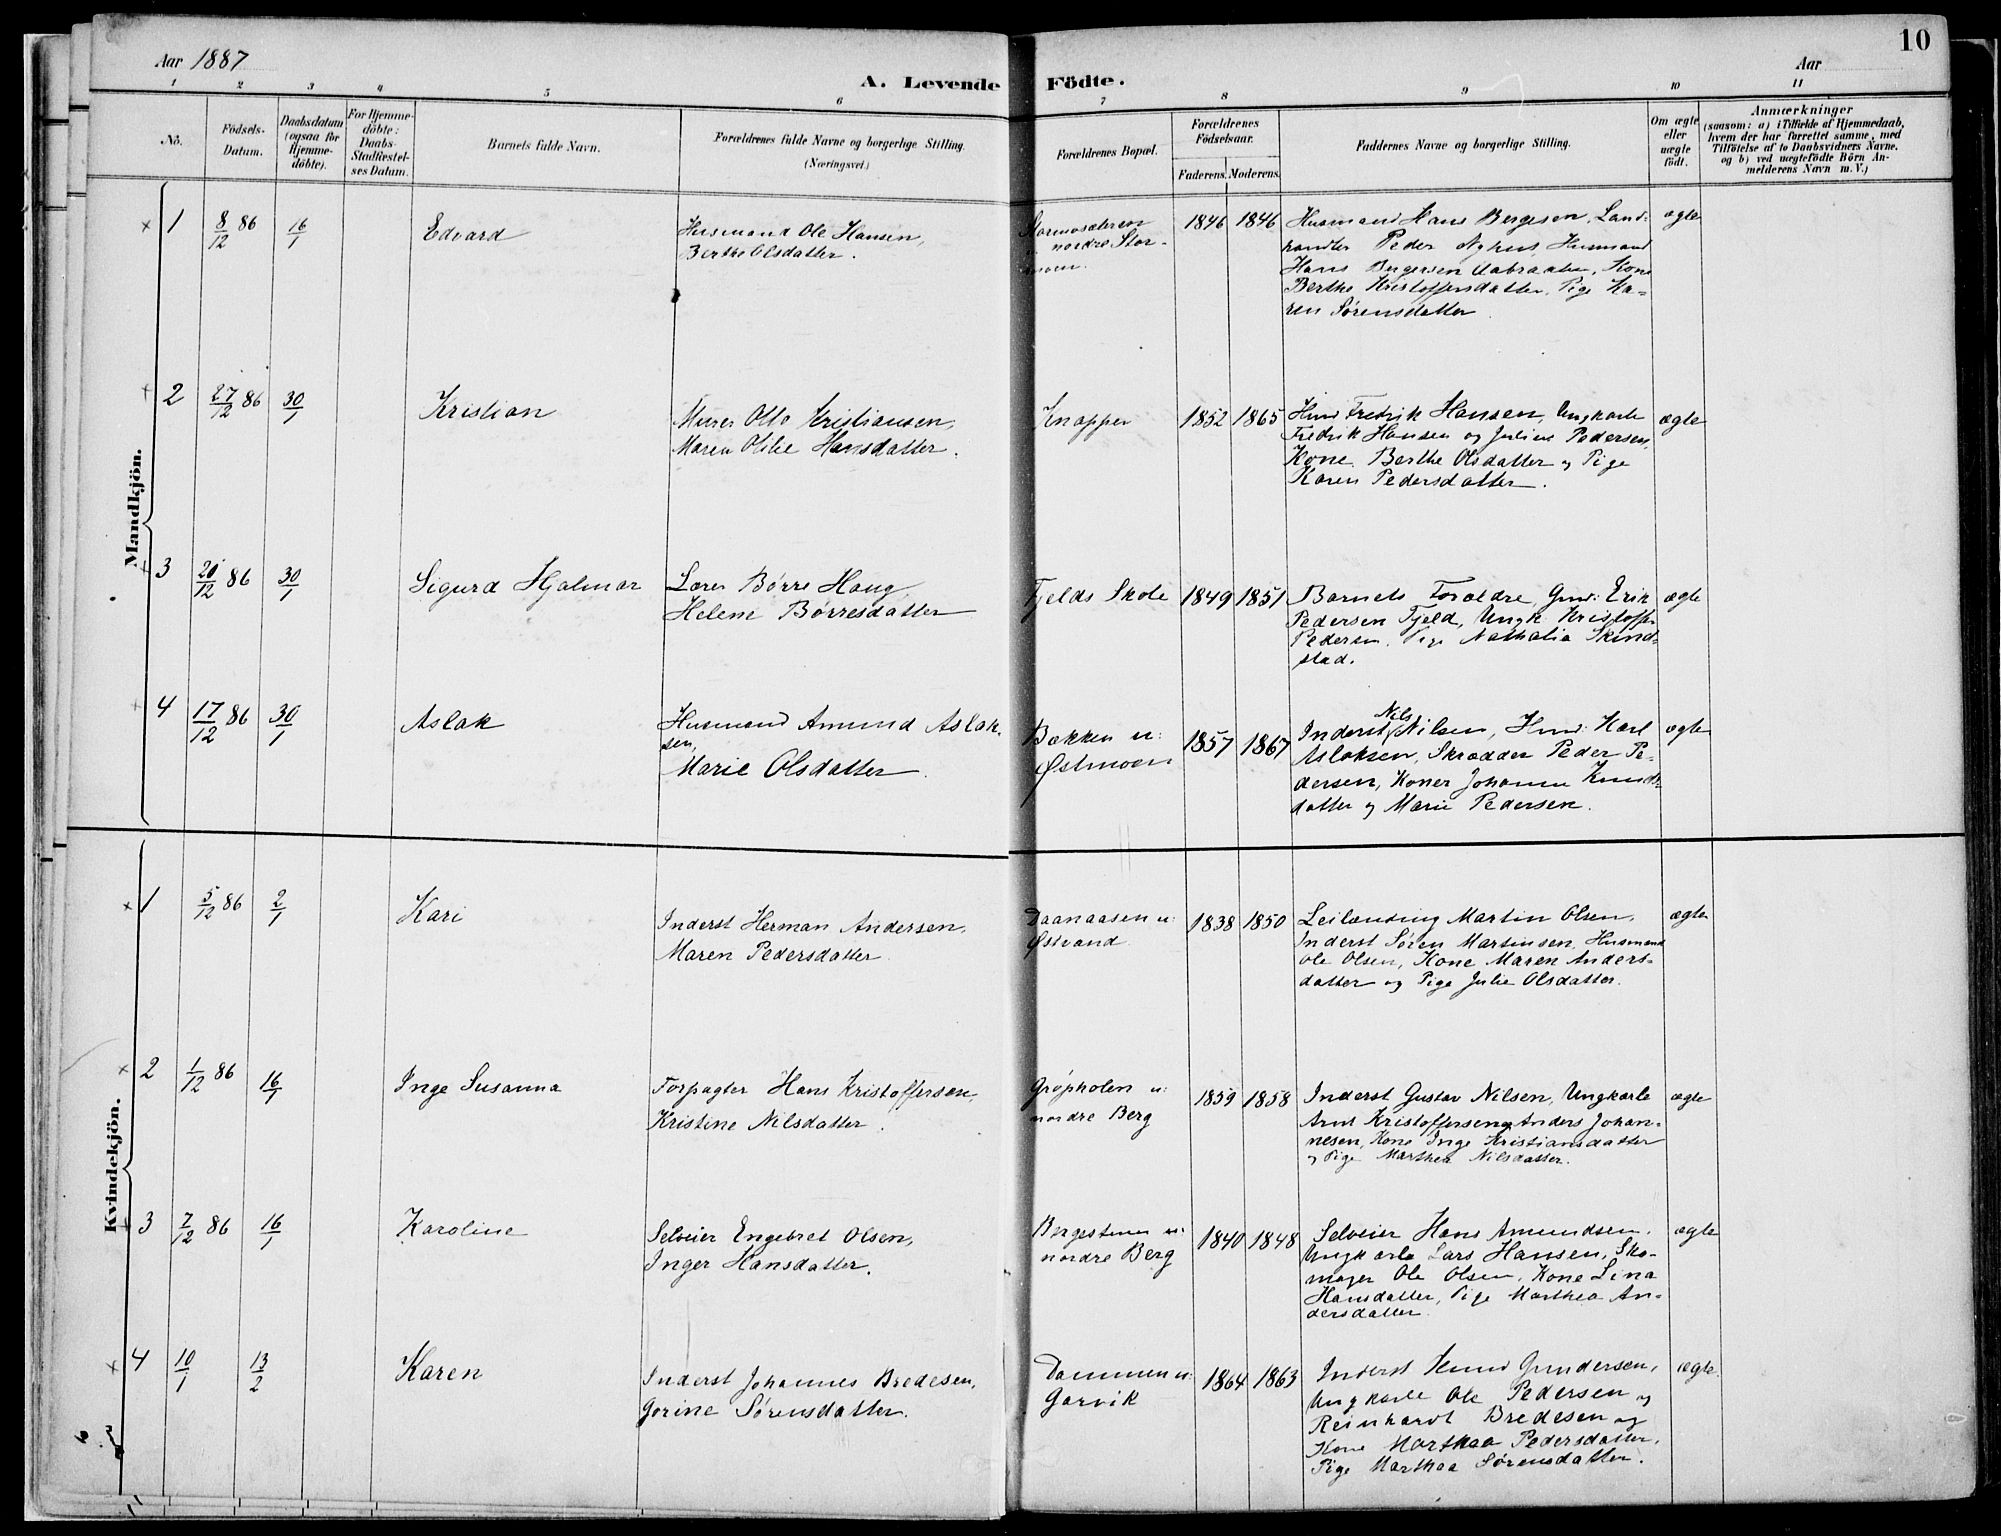 Aar 1887
A. Levende Födte.
Aar
10
1 2 3 4 5 6 7 8 9 10 11
No.
Födsels-
Datum.
Daabsdatum
(ogsaa for
Hjemme-
döbte).
For Hjemme-
döbte:
Daabs-
Stadfæstel-
ses Datum.
Barnets fulde Navn.
Forældrenes fulde Navne og borgerlige Stilling.
(Næringsvei.)
Forældrenes Bopæl.
Forældrenes
Födselsaar.
Faderens. Moderens.
Faddernes Navne og borgerlige Stilling.
Om ægte
eller
uægte
födt.
Anmærkninger
(saasom: a) i Tilfælde af Hjemmedaab,
hvem der har forrettet samme, med
Tilföielse af to Daabsvidners Navne,
og b) ved uægtefödte Börn An-
melderens Navn m. V.)
Mandkjön.
1 8/12 86 16/1 Edvard
Husmand Ole Hansen,
Berthe Olsdatter.
nordre Stor-
moen.
1846 1846
Husmand Hans Bergesen, Land-
handler Peder Nyhus, Husmand
Hans Bergersen Aabraaten, Kone
Berthe Kristoffersdatter, Pige Ka-
ren Sørensdatter
ægte
2 27/12 86 30/1 Kristian
Murer Otto Kristiansen,
Maren Otilie Hansdatter.
Knapper
1852 1865
Hmd Fredrik Hansen, Ungkarle
Fredrik Hansen og Julius Pedersen,
Kone Berthe Olsdatter og Pige
Karen Pedersdatter.
ægte
3 20/12 86 30/1 Sigurd Hjalmar
Lærer Børre Haug,
Helene Børresdatter
Fjelds Skole
1849 1851
Barnets Forældre, Gmd: Erik
Pedersen Fjeld, Ungk Kristoffer
Pedersen, Pige Nathalia Skind-
stad.
ægte
4 17/12 86 30/1 Aslak
Husmand Amund Aslak-
sen,
Marie Olsdatter.
Bakken u:
Østmoen
1857 1867
Inderst Nils Nilsen, Hmd: Karl
Aslaksen, Skrædder Peder Pe-
dersen, Koner Johanne Knuds-
datter og Marie Pedersen.
ægte
Kvindekjön.
1 5/12 86 2/1 Kari
Inderst Herman Andersen,
Maren Pedersdatter
Daanaasen u:
Østvand
1838 1850
Leilænding Martin Olsen,
Inderst Søren Martinsen, Husmand
Ole Olsen, Kone Maren Anders-
datter og Pige Julie Olsdatter.
ægte
2 1/12 86 16/1 Inge Susanna
Forpagter Hans Kristoffersen,
Kristine Nilsdatter.
Grøpholen u:
nordre Berg
1859 1858
Inderst Gustav Nilsen, Ungkarle
Arnt Kristoffersen og Anders Johan-
nesen, Kone Inge Kristiansdatter
og Pige Marthea Nilsdatter.
ægte
3 7/12 86 16/1 Karoline
Selveier Engebret Olsen,
Inger Hansdatter.
Bergestuen u:
nordre Berg
1840 1848
Selveier Hans Amundsen,
Ungkarle Lars Hansen, Sko-
mager Ole Olsen, Kone Lina
Hansdatter, Pige Marthea An-
dersdatter.
ægte
4 10/1 13/2 Karen
Inderst Johannes Bredesen,
Gorine Sørensdatter.
Dammen u:
Garvik
1864 1863
Inderst Knud Gundersen,
Ungkarle Ole Pedersen og
Reinhardt Bredesen og
Kone Marthea Pedersdatter,
Pige Marthea Sørensdatter.
ægte